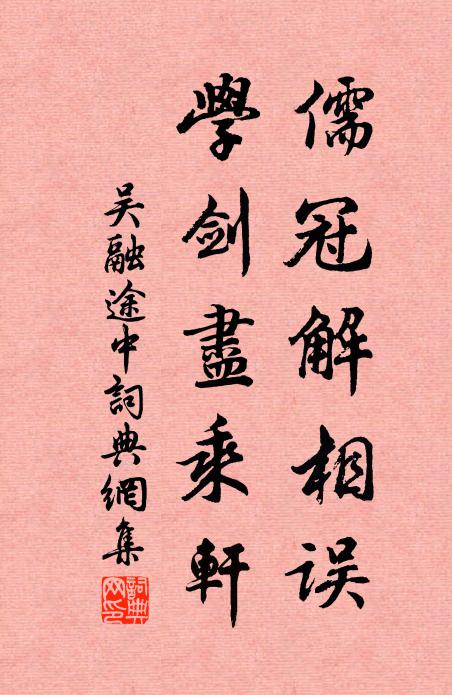 儒冠解相误
學劍盡乘軒
吴融途中詞典網集
詞典網印